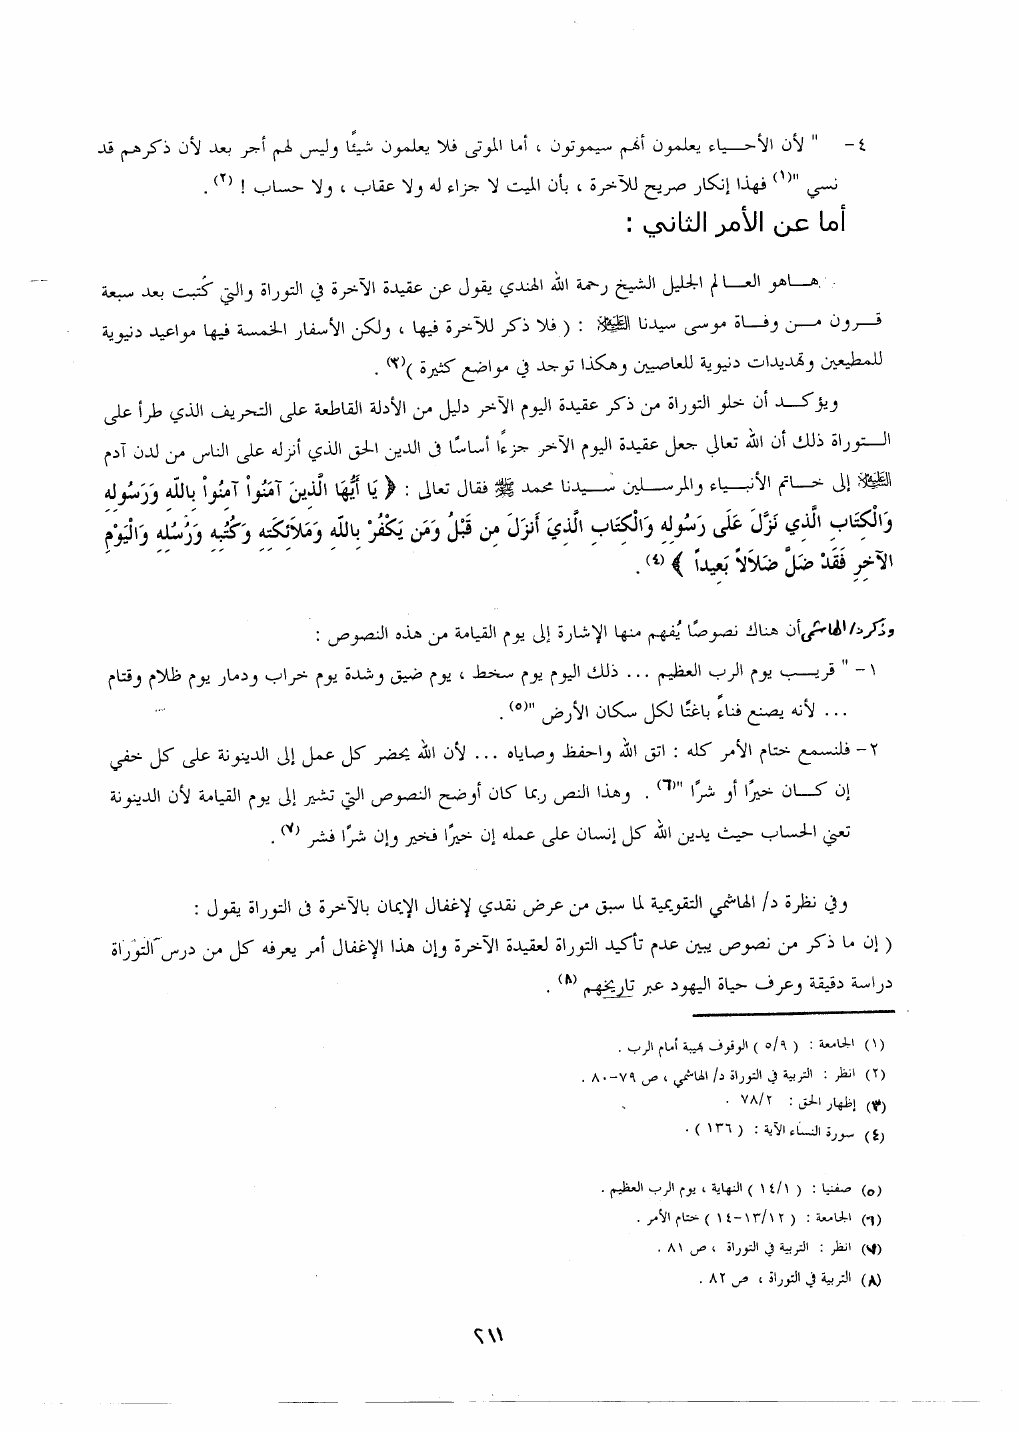 ٤- " لأن الأحياء يعلمون أنهم سيموتون ، أما الموتى فلا يعلمون شيئًا وليس لهم أجر بعد لأن ذكرهم قد
نسي "(١) فهذا إنكار صريح للآخرة ، بأن الميت لا جزاء له ولا عقاب ، ولا حساب ! (٢) .
أما عن الأمر الثاني :
هاهو العالم الجليل الشيخ رحمة الله الهندي يقول عن عقيدة الآخرة في التوراة والتي كُتبت بعد سبعة
قرون من وفاة موسى سيدنا عليه السلام : ( فلا ذكر للآخرة فيها ، ولكن الأسفار الخمسة فيها مواعيد دنيوية
للمطيعين وتهديدات دنيوية للعاصيين وهكذا توجد في مواضع كثيرة )(٣) .
ويؤكد أن خلو التوراة من ذكر عقيدة اليوم الآخر دليل من الأدلة القاطعة على التحريف الذي طرأ على
التوراة ذلك أن الله تعالى جعل عقيدة اليوم الآخر جزءًا أساسًا فى الدين الحق الذي أنزله على الناس من لدن آدم
عليه السلام إلى خاتم الأنبياء والمرسلين سيدنا محمد ﷺ فقال تعالى : ﴿ يَا أَيُّهَا الَّذِينَ آمَنُواْ آمِنُواْ بِاللّهِ وَرَسُولِهِ
وَالْكِتَابِ الَّذِي نَزَّلَ عَلَى رَسُولِهِ وَالْكِتَابِ الَّذِيَ أَنزَلَ مِن قَبْلُ وَمَن يَكْفُرْ بِاللّهِ وَمَلاَئِكَتِهِ وَكُتُبِهِ وَرُسُلِهِ وَالْيَوْمِ
الآخِرِ فَقَدْ ضَلَّ ضَلاَلاً بَعِيداً ﴾ (٤) .
وذكر د/ الهاشمي أن هناك نصوصًا يُفهم منها الإشارة إلى يوم القيامة من هذه النصوص :
١- " قريب يوم الرب العظيم ... ذلك اليوم يوم سخط ، يوم ضيق وشدة يوم خراب ودمار يوم ظلام وقتام
... لأنه يصنع فناءً باغتًا لكل سكان الأرض "(٥) .
٢- فلنسمع ختام الأمر كله : اتق الله واحفظ وصاياه ... لأن الله يحضر كل عمل إلى الدينونة على كل خفي
إن كان خيرًا أو شرًا "(٦) . وهذا النص ربما كان أوضح النصوص التي تشير إلى يوم القيامة لأن الدينونة
تعني الحساب حيث يدين الله كل إنسان على عمله إن خيرًا فخير وإن شرًا فشر (٧) .
وفي نظرة د/ الهاشمي التقويمية لما سبق من عرض نقدي لإغفال الإيمان بالآخرة فى التوراة يقول :
( إن ما ذكر من نصوص يبين عدم تأكيد التوراة لعقيدة الآخرة وإن هذا الإغفال أمر يعرفه كل من درس التوراة
دراسة دقيقة وعرف حياة اليهود عبر تاريخهم (٨) .
(١) الجامعة : ( ٥/٩ ) الوقوف بهيبة أمام الرب .
(٢) انظر : التربية في التوراة د/ الهاشمي ، ص ٧٩-٨٠ .
(٣) إظهار الحق : ٧٨/٢ .
(٤) سورة النساء الآية : ( ١٣٦ ) .
(٥) صفنيا : ( ١٤/١ ) النهاية ، يوم الرب العظيم .
(٦) الجامعة : ( ١٣/١٢-١٤ ) ختام الأمر .
(٧) انظر : التربية في التوراة ، ص ٨١ .
(٨) التربية في التوراة ، ص ٨٢ .
٢١١